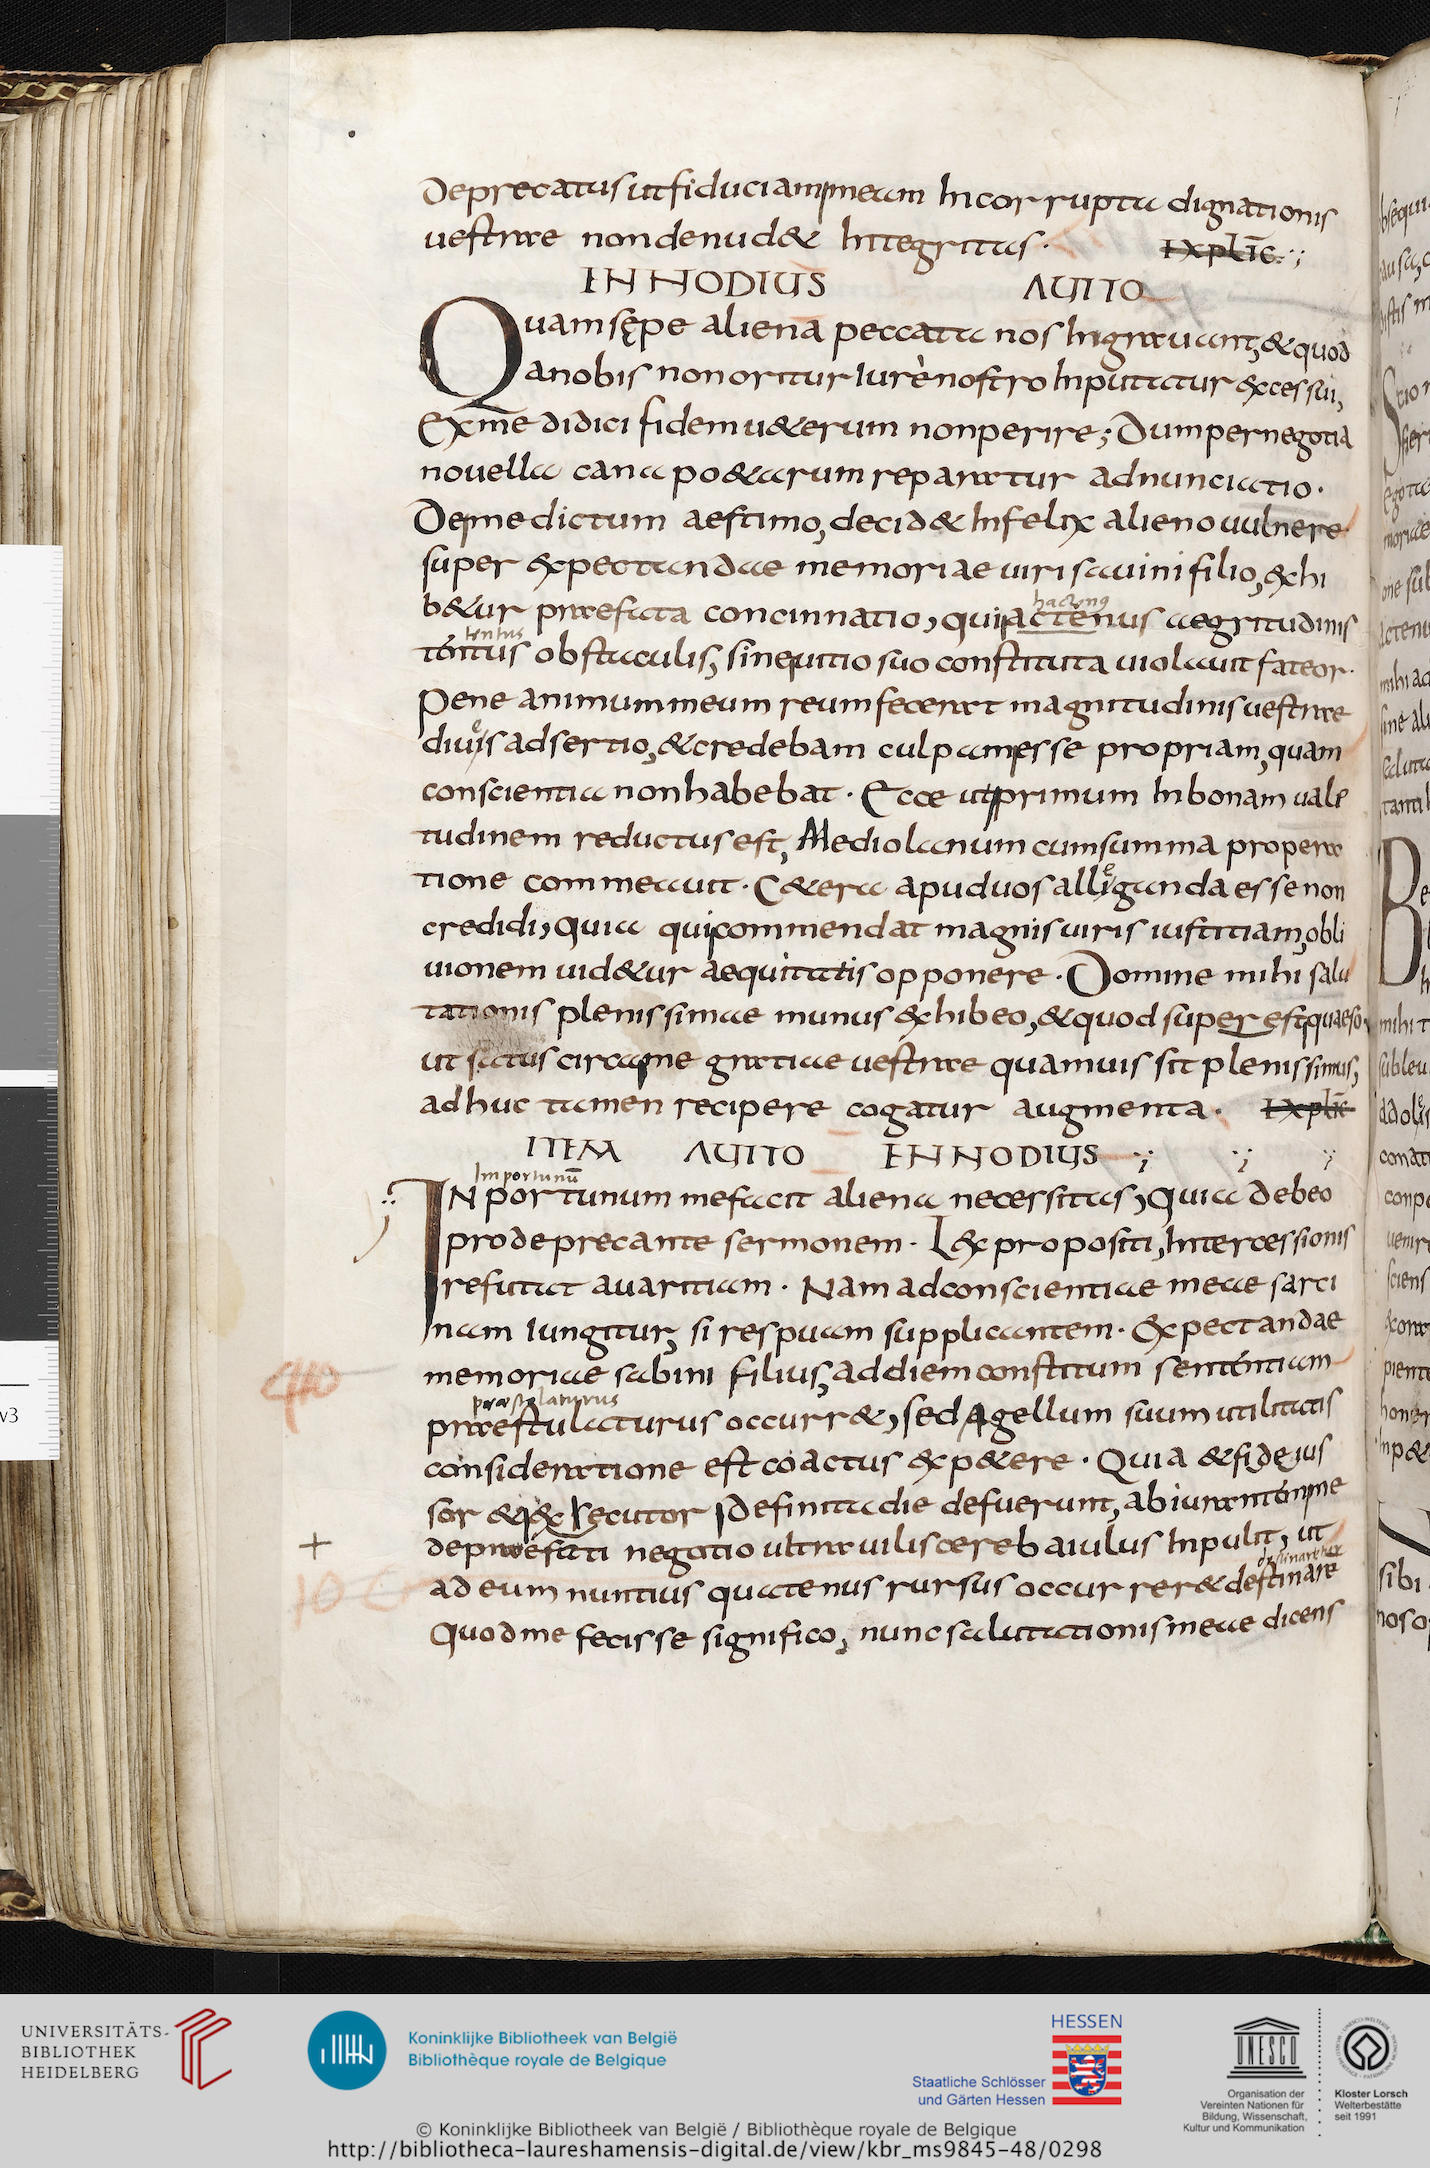 Deprecatus ut fiduciam meam incorrupta dignationis
uestrae non denudet integritas. Explic.
ENNODIUS AUITO
Quam sępe aliena peccata nos ingrauant, & quod
a nobis non oritur iure nostro inputatur excessui,
Ex me didici fidem ueterum non perire; Dum per negotia
nouella cana poetarum reparatur adnunciatio.
De me dictum aestimo, decidet infelix alieno uulnere
super expectandae memoriae uiri sauini filio, exhi
betur praefata concinnatio, qui actenus aegritudinis
hactenus
tentus
tontus obstaculis, sine uitio suo constituta uiolauit fateor.
Pene animum meum reum fecerat magnitudinis uestrae
diuis adsertio, & credebam culpam esse propriam, quam
conscientia non habebat. Ecce ut primum in bonam uale
tudinem reductus est, Mediolanum cum summa propera
tione commeauit. Cetera apud uos alliganda esse non
credidi, quia qui commendat magnis uiris iustitiam, obli
uionem uidetur aequitatis opponere. Domine mihi salu
tationis plenissimae munus exhibeo, & quod super est quaeso
ut status circa me gratiae uestrae quamuis sit plenissimus,
adhuc tamen recipere cogatur augmenta. Explic
ITEM AUITO ENNODIUS
Importunū
INportunum me facit aliena necessitas, quia debeo
pro deprecante sermonem. Lex propositi, intercessionis
refutat auaritiam. Nam ad conscientiae meae sarci
nam iungitur, si respuam supplicantem. Expectandae
memoriae sabini filius, ad diem constitum sententiam
praestolaturus
praestulaturus occurret, sed agellum suum utilitatis
consideratione est coactus expetere. Quia & fideius
sor & exsecutor definita die defuerunt, ab iurantem me
de praefati negotio ultra uiliscere baiulus inpulit, ut
destinaretur
ad eum nuntius quatenus rursus occurreret destinare
Quod me fecisse significo, nunc salutationis meae dicens
440
+
10
v3
UNIVERSITÄTS-
BIBLIOTHEK
HEIDELBERG
Koninklijke Bibliotheek van België
Bibliothèque royale de Belgique
HESSEN
Staatliche Schlösser
und Gärten Hessen
UNESCO
Organisation der
Vereinten Nationen für
Bildung, Wissenschaft,
Kultur und Kommunikation
Kloster Lorsch
Welterbestätte
seit 1991
© Koninklijke Bibliotheek van België / Bibliothèque royale de Belgique
http://bibliotheca-laureshamensis-digital.de/view/kbr_ms9845-48/0298